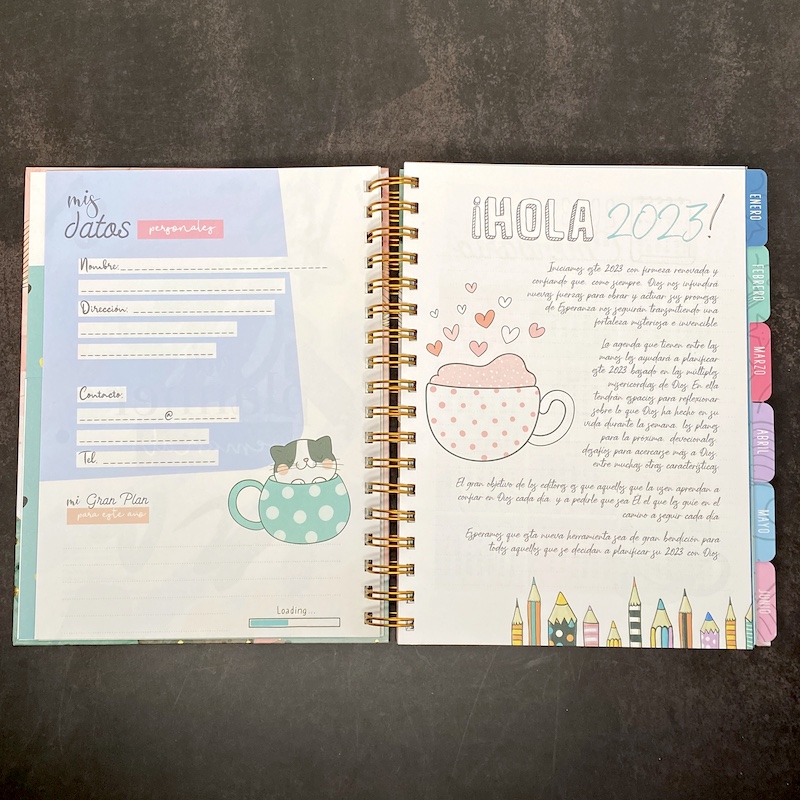 mis
datos personales
Nombre:
Dirección:
Contacto:
@
Tel.
mi Gran Plan
para este año
Loading...
¡HOLA 2023!
Iniciamos este 2023 con firmeza renovada y
confiando que, como siempre, Dios nos infundirá
nuevas fuerzas para obrar y actuar sus promesas
de Esperanza nos seguirán transmitiendo una
fortaleza misteriosa e invencible.
La agenda que tienen entre las
manos les ayudará a planificar
este 2023 basado en las múltiples
misericordias de Dios. En ella
tendrán espacios para reflexionar
sobre lo que Dios ha hecho en su
vida durante la semana, los planes
para la próxima, devocionales,
desafíos para acercarse más a Dios,
entre muchas otras características.
El gran objetivo de los editores es que aquellos que la usen aprendan a
confiar en Dios cada día, y a pedirle que sea Él el que les guíe en el
camino a seguir cada día.
Esperamos que esta nueva herramienta sea de gran bendición para
todos aquellos que se decidan a planificar su 2023 con Dios.
ENERO
FEBRERO
MARZO
ABRIL
MAYO
JUNIO